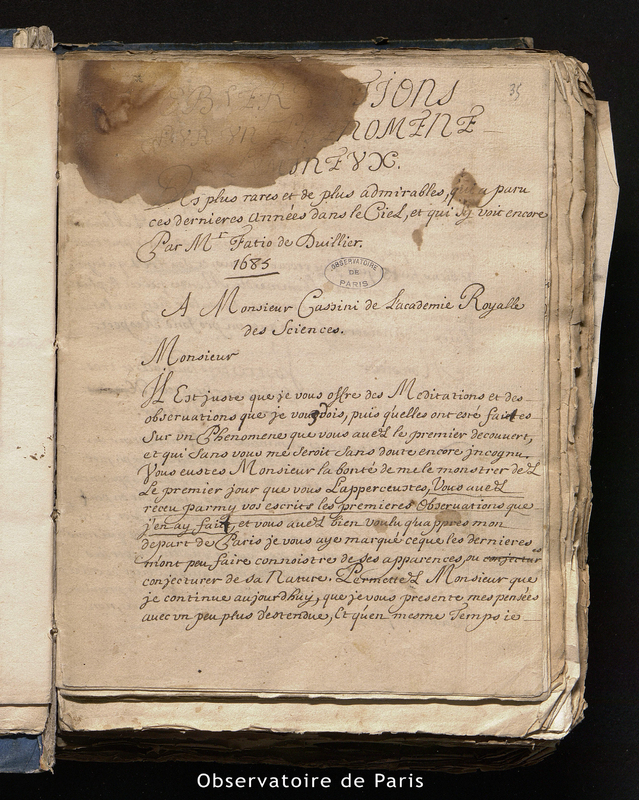 35
OBSERVATIONS
SVR VN PHENOMENE
LVMINEVX.
Des plus rares et de plus admirables, qui a paru
ces dernieres années dans le Ciel, et qui s'y voit encore
Par Mr Fatio de Duillier.
1685
OBSERVATOIRE
DE
PARIS
A Monsieur Cassini de L'academie Royalle
des Sciences.
Monsieur
Il Est juste que je vous offre des Meditations et des
observations que je vous dois, puis qu'elles ont esté faittes
sur vn Phenomene que vous auez le premier decouvert,
et qui sans vous me seroit sans doute encore jnconnu.
Vous eustes Monsieur la bonté de me le monstrer dez
Le premier jour que vous L'apperceustes, Vous auez
receu parmy vos escrits les premieres observations que
j'en ay fait, et vous auez bien voulu qu'appres mon
depart de Paris je vous aye marqué ce que les dernieres
m'ont peu faire connoistre de ses apparences, ou conjectur
conjecturer de sa Nature. Permettez Monsieur que
je continue aujourdhuy, que je vous presente mes pensées
auec vn peu plus d'estendue, Et qu'en mesme Temps je
Observatoire de Paris